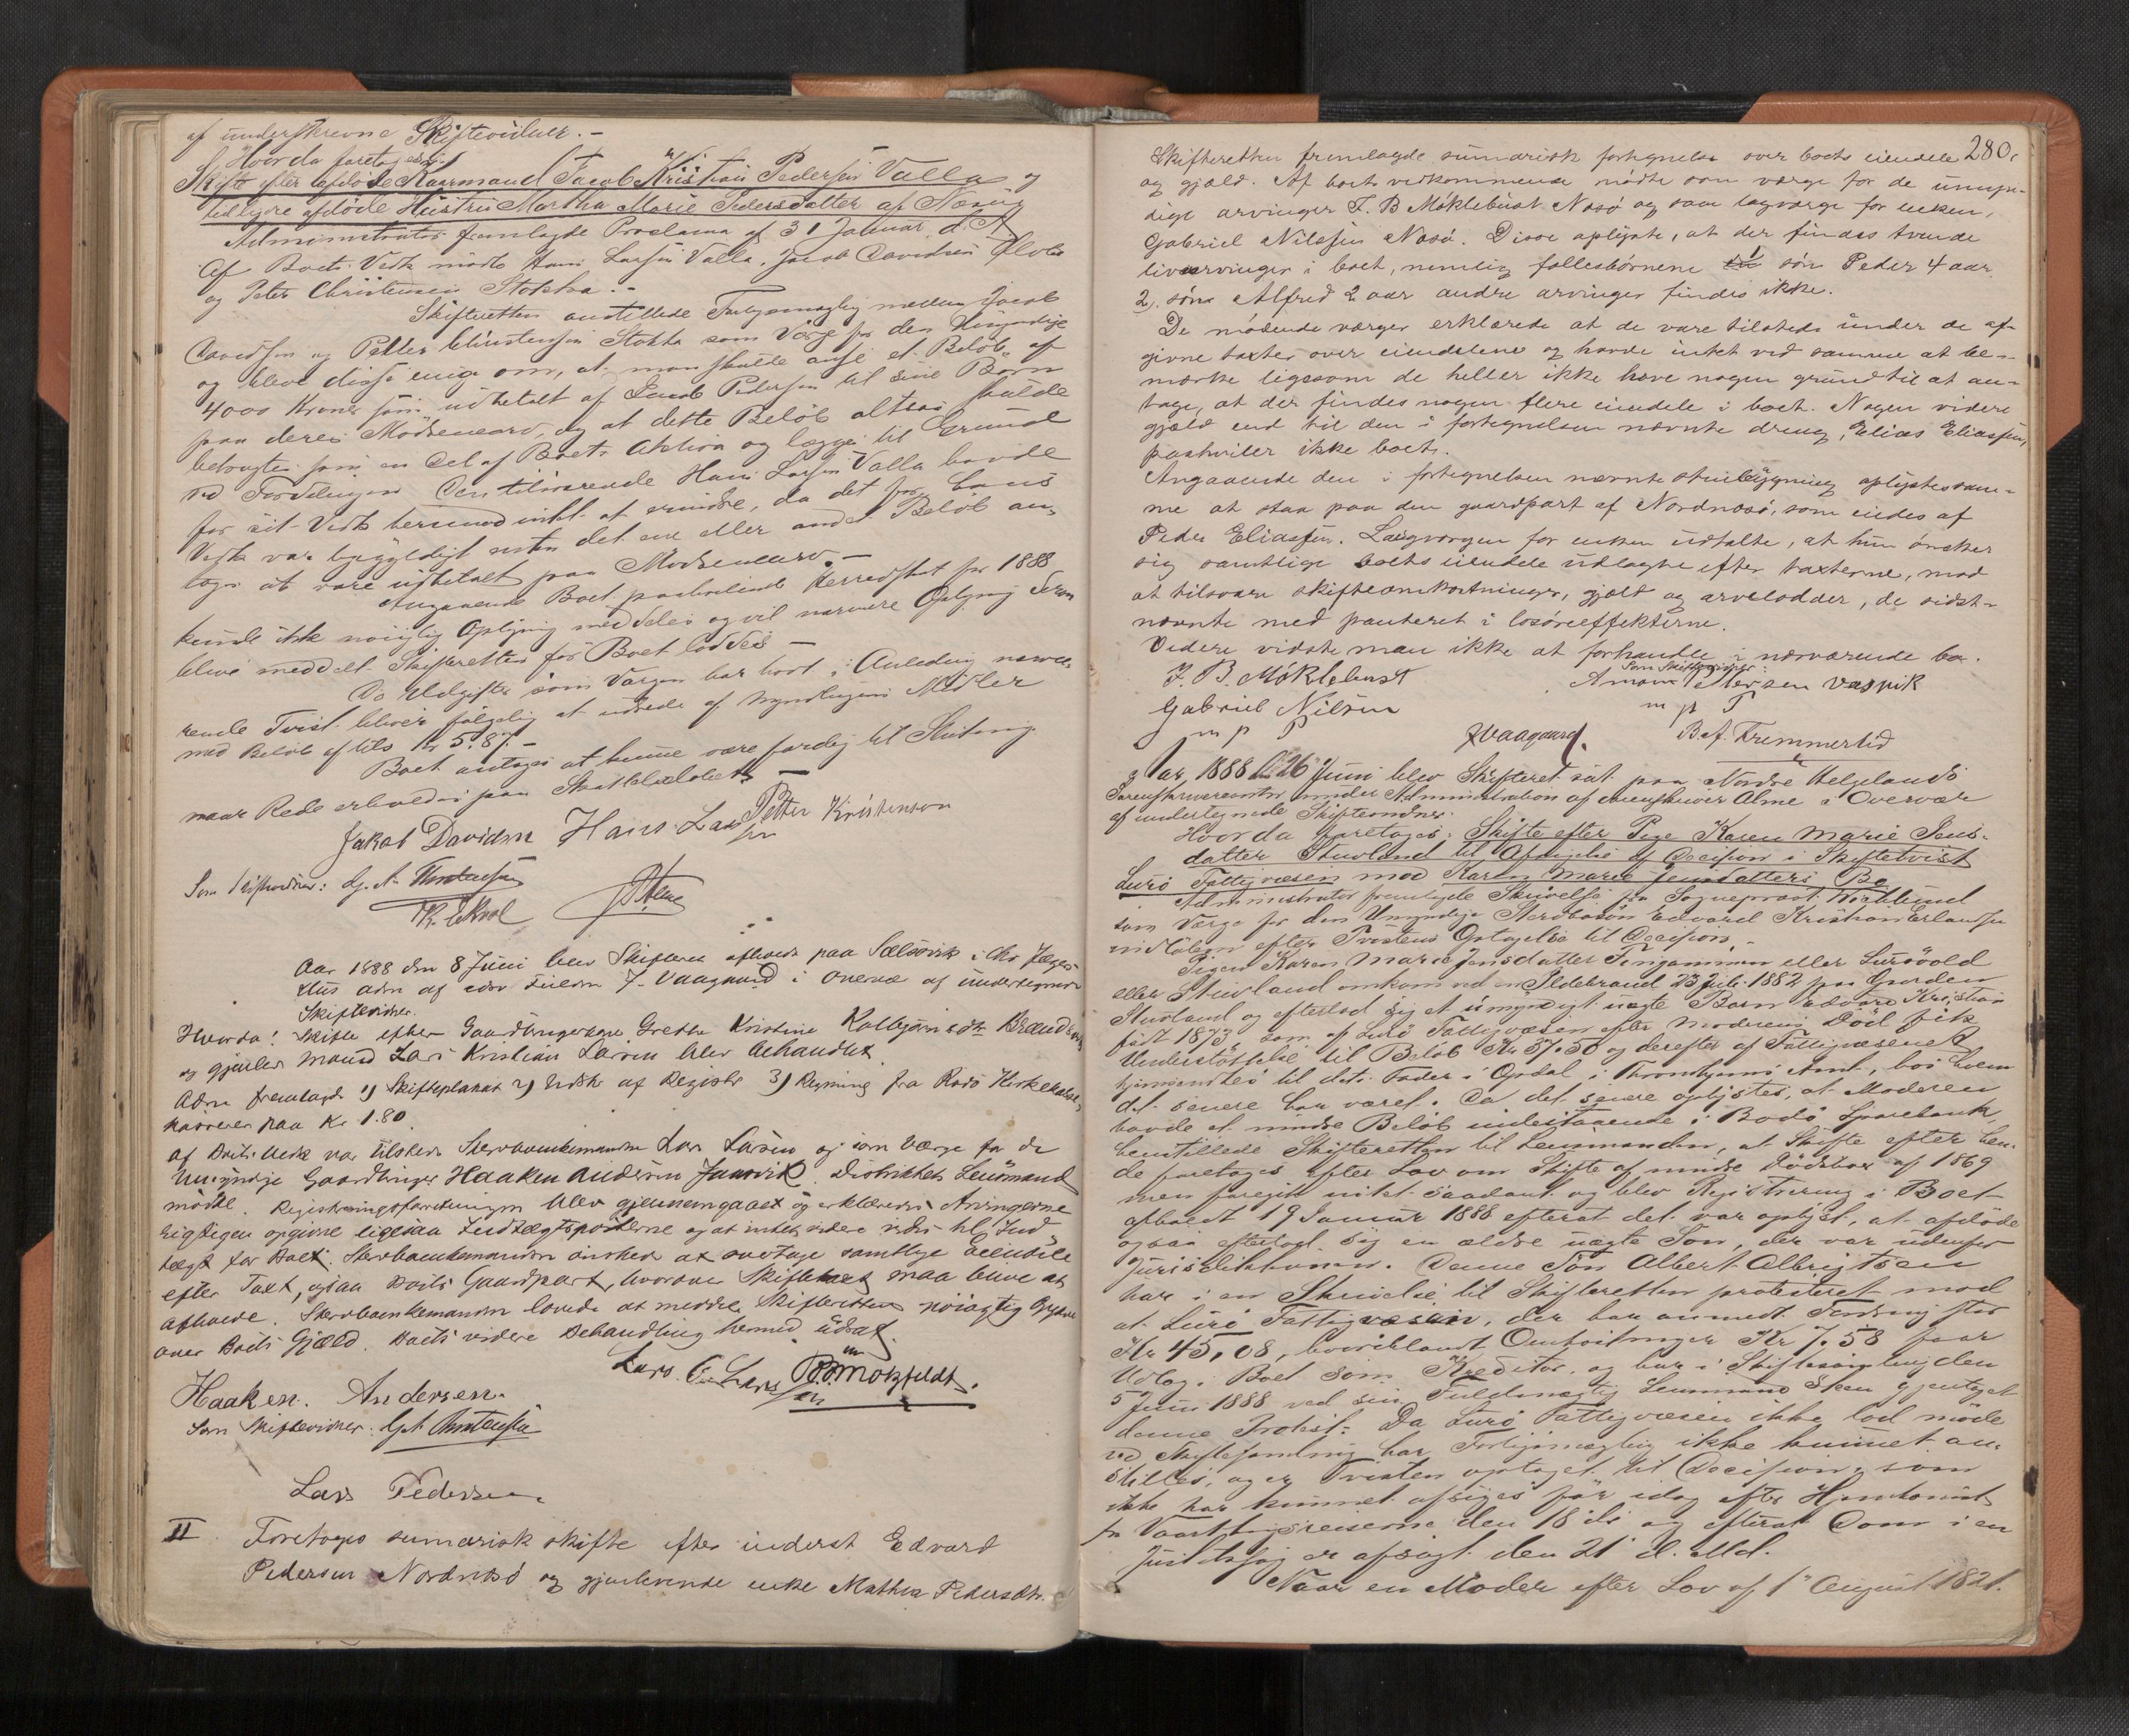 af underskrevne Skiftevidner. -
Hvorda foretoges:
Skifte efter afdøde Kaarmand Jacob Kristian Pedersen Valla og
tidligere afdøde Hustru Martha Marie Pedersdatter af Næsøy
Administrator fremlagde Proclama af 31 Januar d. A.
Af Boets Vedk mødte Hans Larsen Valla, Jacob Davidsen
og Peter Christensen Stokka. -
Skifteretten anstillede Forligsmægling mellem Jacob
Davidsen og Petter Christensen Stokka som Værge for den Umyndige
og bleve disse enige om, at man skulde anse et Beløb af
4000 Kroner som udbetalt af Jacob Pedersen til sine Børn
paa deres Mødrenearv, og at dette Beløb altsaa skulde
betragtes som en Del af Boets Aktiva og lægges til Grund
ved Fordelingen. Den tilværende Hans Larsen Valla havde
for sit Vedk hermod intet at erindre, da det for hans
Vedk var ligegyldigt enten det ene eller andet Beløb an-
toges at være udbetalt paa Mødrenearv. -
Angaaende Boet paahvilende Herredskat for 1888
kunde ikke nøiagtig Oplysning meddeles og vil nærmere Oplysning
blive meddelt Skifteretten før Boet sluttes -
De Udgifter som Værgen har havt i Anledning nærvæ-
rende Tvist bliver følgelig at udrede af Myndlingens Midler
med Beløb aftils Kr 5.87. -
Boet antoges at kunne være færdig til Slutning
naar Rede erholdes paa Skattebeløbet -
Jakob Davidsen Hans Larssen Petter Kristensen
Som Skiftevidner:
Aar 1888 den 8 Juni blev Skifteret afholdt paa Selsøvik i
Hus adm af edsv Fuldm J. Vaagaard i overvær af undertegnede
Skiftevidner.
Hvorda: Skifte efter Gaardbrugerkone Grethe Kristine Kolbjørnsdtr
og gjenlev mand Lars Kristian Larsen blev behandlet.
Adm fremlagde 1) Skifteplakat 2) Udskr af Registr 3) Regning fra Rødø Kirke
kasserer paa Kr 1.80.
Af Boets Vedk var tilstede Stervboenkemanden Lars Larsen og som Værge for de
Umyndige Gaardbruger Haaken Andersen. Distriktets Lensmand
mødte. Registreringsforretningen blev gjennemgaaet og erklæredes Arvingerne
rigtigen opgivne ligesaa Indtægtsposterne og at intet videre vides til Ind
tægt for Boet. Stervboenkemanden ønsker at overtage samtlige Eiendele
efter Taxt, ogsaa Boets Gaardpart, hvorover Skiftetaxt maa blive at
afholde. Stervboenkemanden lovede at meddele Skifteretten nøiagtig Opgave
over Boets Gjæld. Boets videre Behandling hermed udsat.
Lars C. Larssen Motzfeldt.
Haaken. Andersen.
Som Skiftevidner:
Lars Pedersen
II Foretages sumarisk skifte efter inderst Edvard
Pedersen Nordnesø og gjenlevende enke Mathea Pedersdtr.
280.
Skifteretten fremlagde sumarisk fortegnelse over boets eiendele
og gjæld. Af boets vedkommende mødte som værge for de umyn-
dige arvinger J. B Møklebust Nesø og som lagværge for enken,
Gabriel Nilssen Nesø. Disse oplyste, at der findes tvende
livsarvinger i boet, nemlig fællesbørnene 1) søn Peder 4 aar
2) søn Alfred 2 aar andre arvinger findes ikke.
De mødende værger erklærede at de vare tilstede under de af-
givne taxter over eiendelene og havde intet ved samme at be-
mærke ligesom de heller ikke have nogen grund til at an-
tage, at der findes nogen flere eiendele i boet. Nogen videre
gjæld end til den i fortegnelsen nævnte dreng, Elias Eliassen,
paahviler ikke boet.
Angaaende den i fortegnelsen nævnte stuebygning oplystes sam-
me at staa paa den gaardpart af Nordnesø, som eiedes af
Peder Eliassen. Lagværgen for enken udtalte, at hun ønsker
sig samtlige boets eiendele udlagte efter taxterne, mod
at tilsvare skifteomkostninger, gjæld og arvelodder, de sidst-
nævnte med panteret i løsøreeffekterne.
Videre vidste man ikke at forhandle i nærværende bo.
J. B. Møklebust Som Skiftevidner:
Gabriel Nilsen
m p P m p P
JVaagaard.
Aar 1888 den 26 Juni blev Skifteret sat paa Nordre Helgelands
Sorenskriverkontor under Administration af Sorenskriver Alme i Overvær
af undertegnede Skiftevidner.
Hvorda foretoges: Skifte efter Pige Karen Marie Jens-
datter Stuvland til Afsigelse af Decision i Skiftetvist
Lurø Fattigvæsen mod Karen Marie Jensdatters Bo
Administrator fremlagde Skrivelse fra Sogneprest
som Værge for den Umyndige Stervbosøn Edvard Kristian Erlandsen
indløben efter Tvistens Optagelse til Decision. -
Pigen Karen Marie Jensdatter Tengammen eller Lurøvold
eller Stuvland omkom ved en Ildebrand 23 Juli 1882 paa Gaarden
Stuvland og efterlod sig et umyndigt uægte Barn Edvard Kristian
født 1873 som af Lurø Fattigvæsen efter Moderens Død fik
Understøttelse til Beløb Kr 37.50 og derefter af Fattigvæsenet
hjemsendtes til dets Fader i Opdal i Throndhjems Amt, hos hvem
det senere har været. Da det senere oplystes, at Moderen
havde et mindre Beløb indestaaende i Bodø Sparebank,
henstillede Skifteretten til Lensmanden, at Skifte efter hen-
de foretages efter Lov om Skifte af mindre Dødsboer af 1869
men foregik intet saadant og blev Registrering i Boet
afholdt 19 Januar 1888 efterat det var oplyst, at afdøde
ogsaa efterlod sig en ældre uægte Søn, der var udenfor
Jurisdiktionen. Denne Søn Albert Albrigtsen
har i en Skrivelse til Skifteretten protesteret mod
at Lurø Fattigvæsen, der har anmeldt Fordring stor
Kr 45,08, hvoriblandt Omkostninger Kr 7.58 faar
Udlæg i Boet som Kreditor og har i Skiftesamling den
5 Juni 1888 ved sin Fuldmægtig Lensmand Steen gjentaget
denne Protest. Da Lurø Fattigvæsen ikke lod møde
ved Skiftesamling har Forligsmægling ikke kunnet an-
stilles, og er Tvisten optaget til Decision, som
ikke har kunnet afsiges før idag efter Hjemkomst
fra Vaartingsreiserne den 18 ds og efterat Dom i en
Justitssag er afsagt den 21 d. Md.
Naar en Moder efter Lov af 1 August 1821.